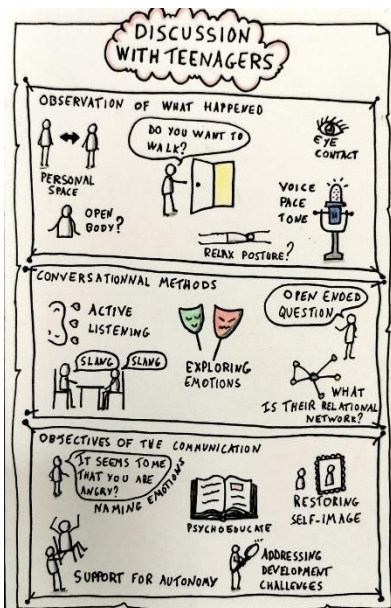 DISCUSSION
WITH TEENAGERS
OBSERVATION OF WHAT HAPPENED
PERSONAL
SPACE
DO YOU WANT TO
WALK?
EYE
CONTACT
OPEN
BODY?
VOICE
PACE
TONE
RELAX POSTURE?
CONVERSATIONNAL METHODS
ACTIVE
LISTENING
SLANG
SLANG
EXPLORING
EMOTIONS
OPEN ENDED
QUESTION
WHAT
IS THEIR RELATIONAL
NETWORK?
OBJECTIVES OF THE COMMUNICATION
IT SEEMS TO ME
THAT YOU ARE
ANGRY?
NAMING EMOTIONS
PSYCHOEDUCATE
RESTORING
SELF-IMAGE
SUPPORT FOR AUTONOMY
ADDRESSING
DEVELOPMENT
CHALLENGES